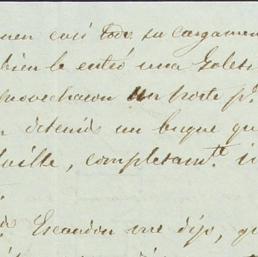 casi todo su cargamen
bien le entró una Golet
aprovecharon un porte p.
detenido un buque qu
completam.te i
Escandon me dijo, qu